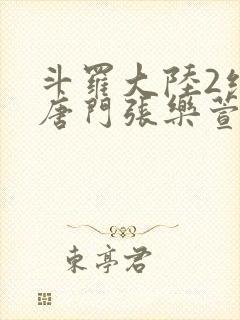 斗羅大陸2
唐門張樂萱
東亭君